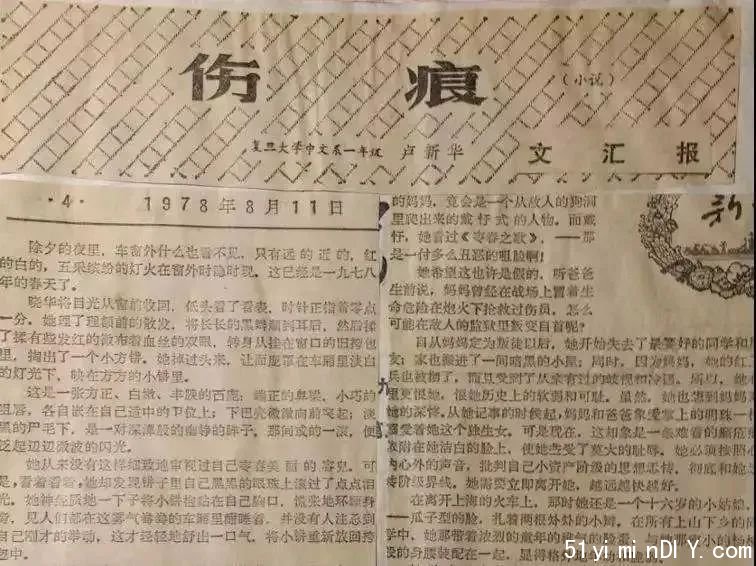 伤痕
（小说）
复旦大学中文系一年级 卢新华 文汇报
·4· 1978年8月11日
除夕的夜里，车窗外什么也看不见，只有远的近的，红
的白的，五采缤纷的灯火在窗外时隐时现。这已经是一九七八
年的春天了。
晓华将目光从窗前收回，低头看了看表，时针正指着零点
一分。她理了理额前的散发，将长长的黑辫顺到耳后，然后揉
了揉有些发红的微布着血丝的双眼，转身从挂在窗口的旧挎包
里，掏出了一个小方镜。她掉过头来，让面庞罩在车厢里淡白
的灯光下，映在方方的小镜里。
这是一张方正、白嫩、丰腴的面庞：端正的鼻梁，小巧的
嘴唇，各自嵌在自己适中的部位上；下巴壳微微向前突起；淡
黑的眉毛下，是一对深潭般的幽静的眸子，那间或的一滚，便
泛起道道微波的闪光。
她从来没有这样细致地审视过自己青春美丽的容貌。可
是，看着看着，她却发现镜子里自己黑黑的眼珠上滚过了点点泪
光。她神经质地一下子将小镜抱贴在自己胸口，慌张地环顾身
旁，见人们都在这雾气腾腾的车厢里酣睡着，并没有人注意到
自己刚才的举动，这才轻轻地舒出一口气，将小镜重新放回挎
包中。
的妈妈，竟会是一个从敌人的狗洞
里爬出来的戴愉式的人物。而戴
愉，她看过《青春之歌》，——那
是一付多么丑恶的咀脸啊！
她希望这也许是假的，听爸爸
生前说，妈妈曾经在战场上冒着生
命危险在炮火下抢救过伤员，怎么
可能在敌人的监狱里叛变自首呢？
自从妈妈定为叛徒以后，她开始失去了最要好的同学和朋
友；家也搬进了一间暗黑的小屋；同时，因为妈妈，她的红卫
兵也被撤了，而且受到了从未有过的歧视和冷遇。所以，她
更恨她，恨她历史上的软弱和可耻。虽然，她也想到妈妈
她的深情。从她记事的时候起，妈妈和爸爸象爱掌上的明珠一
爱着她这个独生女。可是现在，这却象是一条难看的癞疮疤
依附在她洁白的脸上，使她蒙受了莫大的耻辱。她必须按照心
内心外的声音，批判自己小资产阶级的思想感情，彻底和她
阶级界线。她需要立即离开她，越远越快越好。
在离开上海的火车上，那时她还是一个十六岁的小姑娘，
——瓜子型的脸，扎着两根短短的小辫，在所有上山下乡的同
学中，她那带着浓烈的童年的稚气的脸蛋，与她那
的身腰装配在一起，显得格外
新
51yi mi nDI Y. com